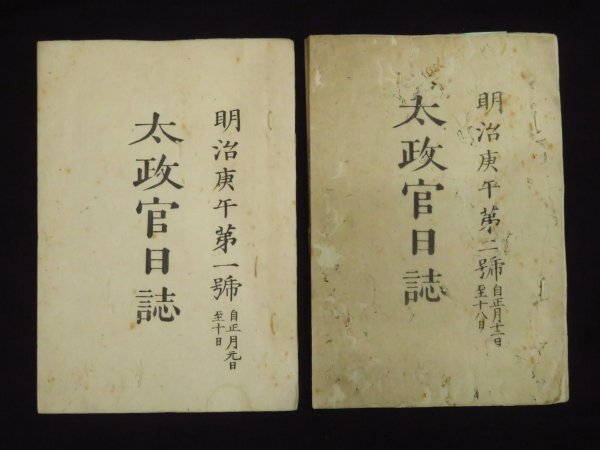 明治庚午第一號 自正月元日
至十日
太政官日誌
明治庚午第二號 自正月十一日
至十八日
太政官日誌